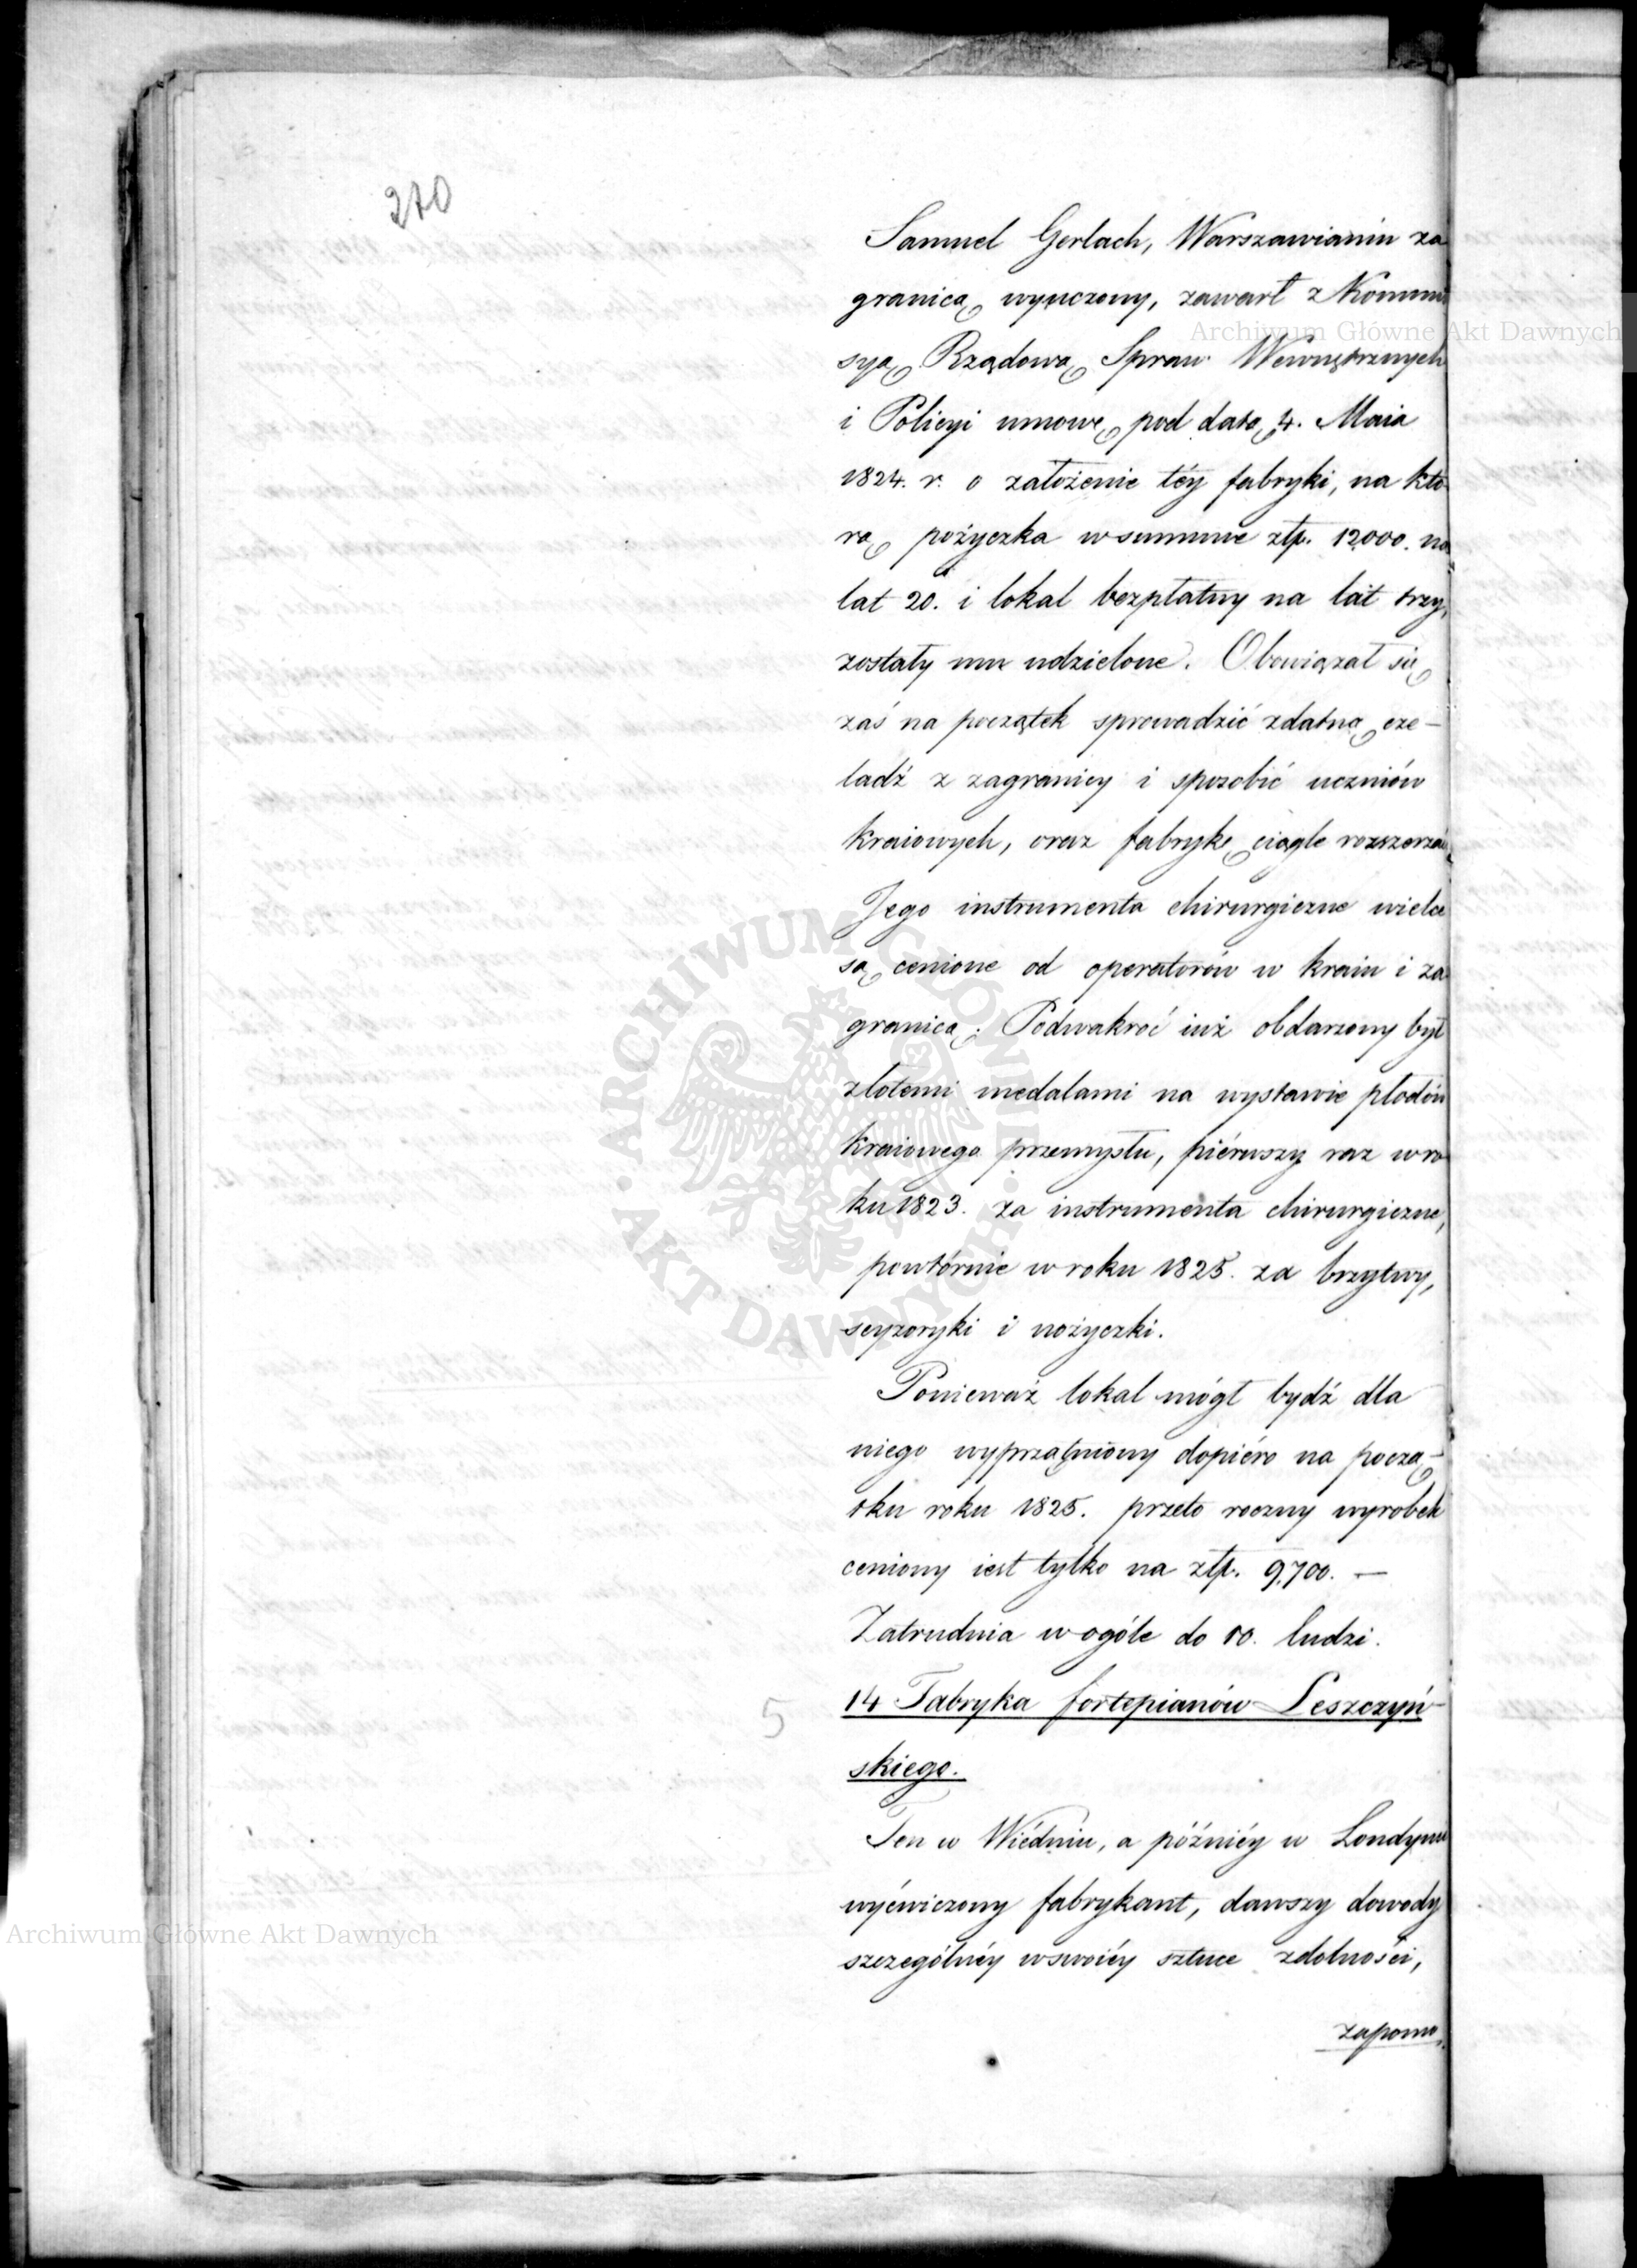 270
Samuel Gerlach, Warszawianin za
granicą wyuczony, zawarł z Kommi
syą Rządową Spraw Wewnętrznych
i Policyi umowę pod datą 4. Maia
1824. r. o założenie téy fabryki, na któ
rą pożyczka w summie złp. 12,000. na
lat 20. i lokal bezpłatny na lat trzy,
zostały mu udzielone. Obowiązał się
zaś na początek sprowadzić zdatną cze-
ladź z zagranicy i sposobić uczniów
kraiowych, oraz fabrykę ciągle rozszerzać.
Jego instrumenta chirurgiczne wielce
są cenione od operatorów w kraiu i za
granicą. Podwakroć iuż obdarzony był
złotemi medalami na wystawie płodów
kraiowego przemysłu, piérwszy raz w ro
ku 1823. za instrumenta chirurgiczne,
powtórnie w roku 1825. za brzytwy,
scyzoryki i nożyczki.
Ponieważ lokal mógł bydź dla
niego wyprzątniony dopiéro na począ-
tku roku 1825. przeto roczny wyrobek
ceniony iest tylko na złp. 9,700. —
Zatrudnia w ogóle do 10. ludzi.
5 14 Fabryka fortepianów Leszczyń
skiego.
Ten w Wiédniu, a późniéy w Londynie
wyćwiczony fabrykant, dawszy dowody
szczególnéy w swoiéy sztuce zdolności,
zapomo
Archiwum Główne Akt Dawnych
Archiwum Główne Akt Dawnych
• ARCHIWUM GŁÓWNE •
AKT DAWNYCH